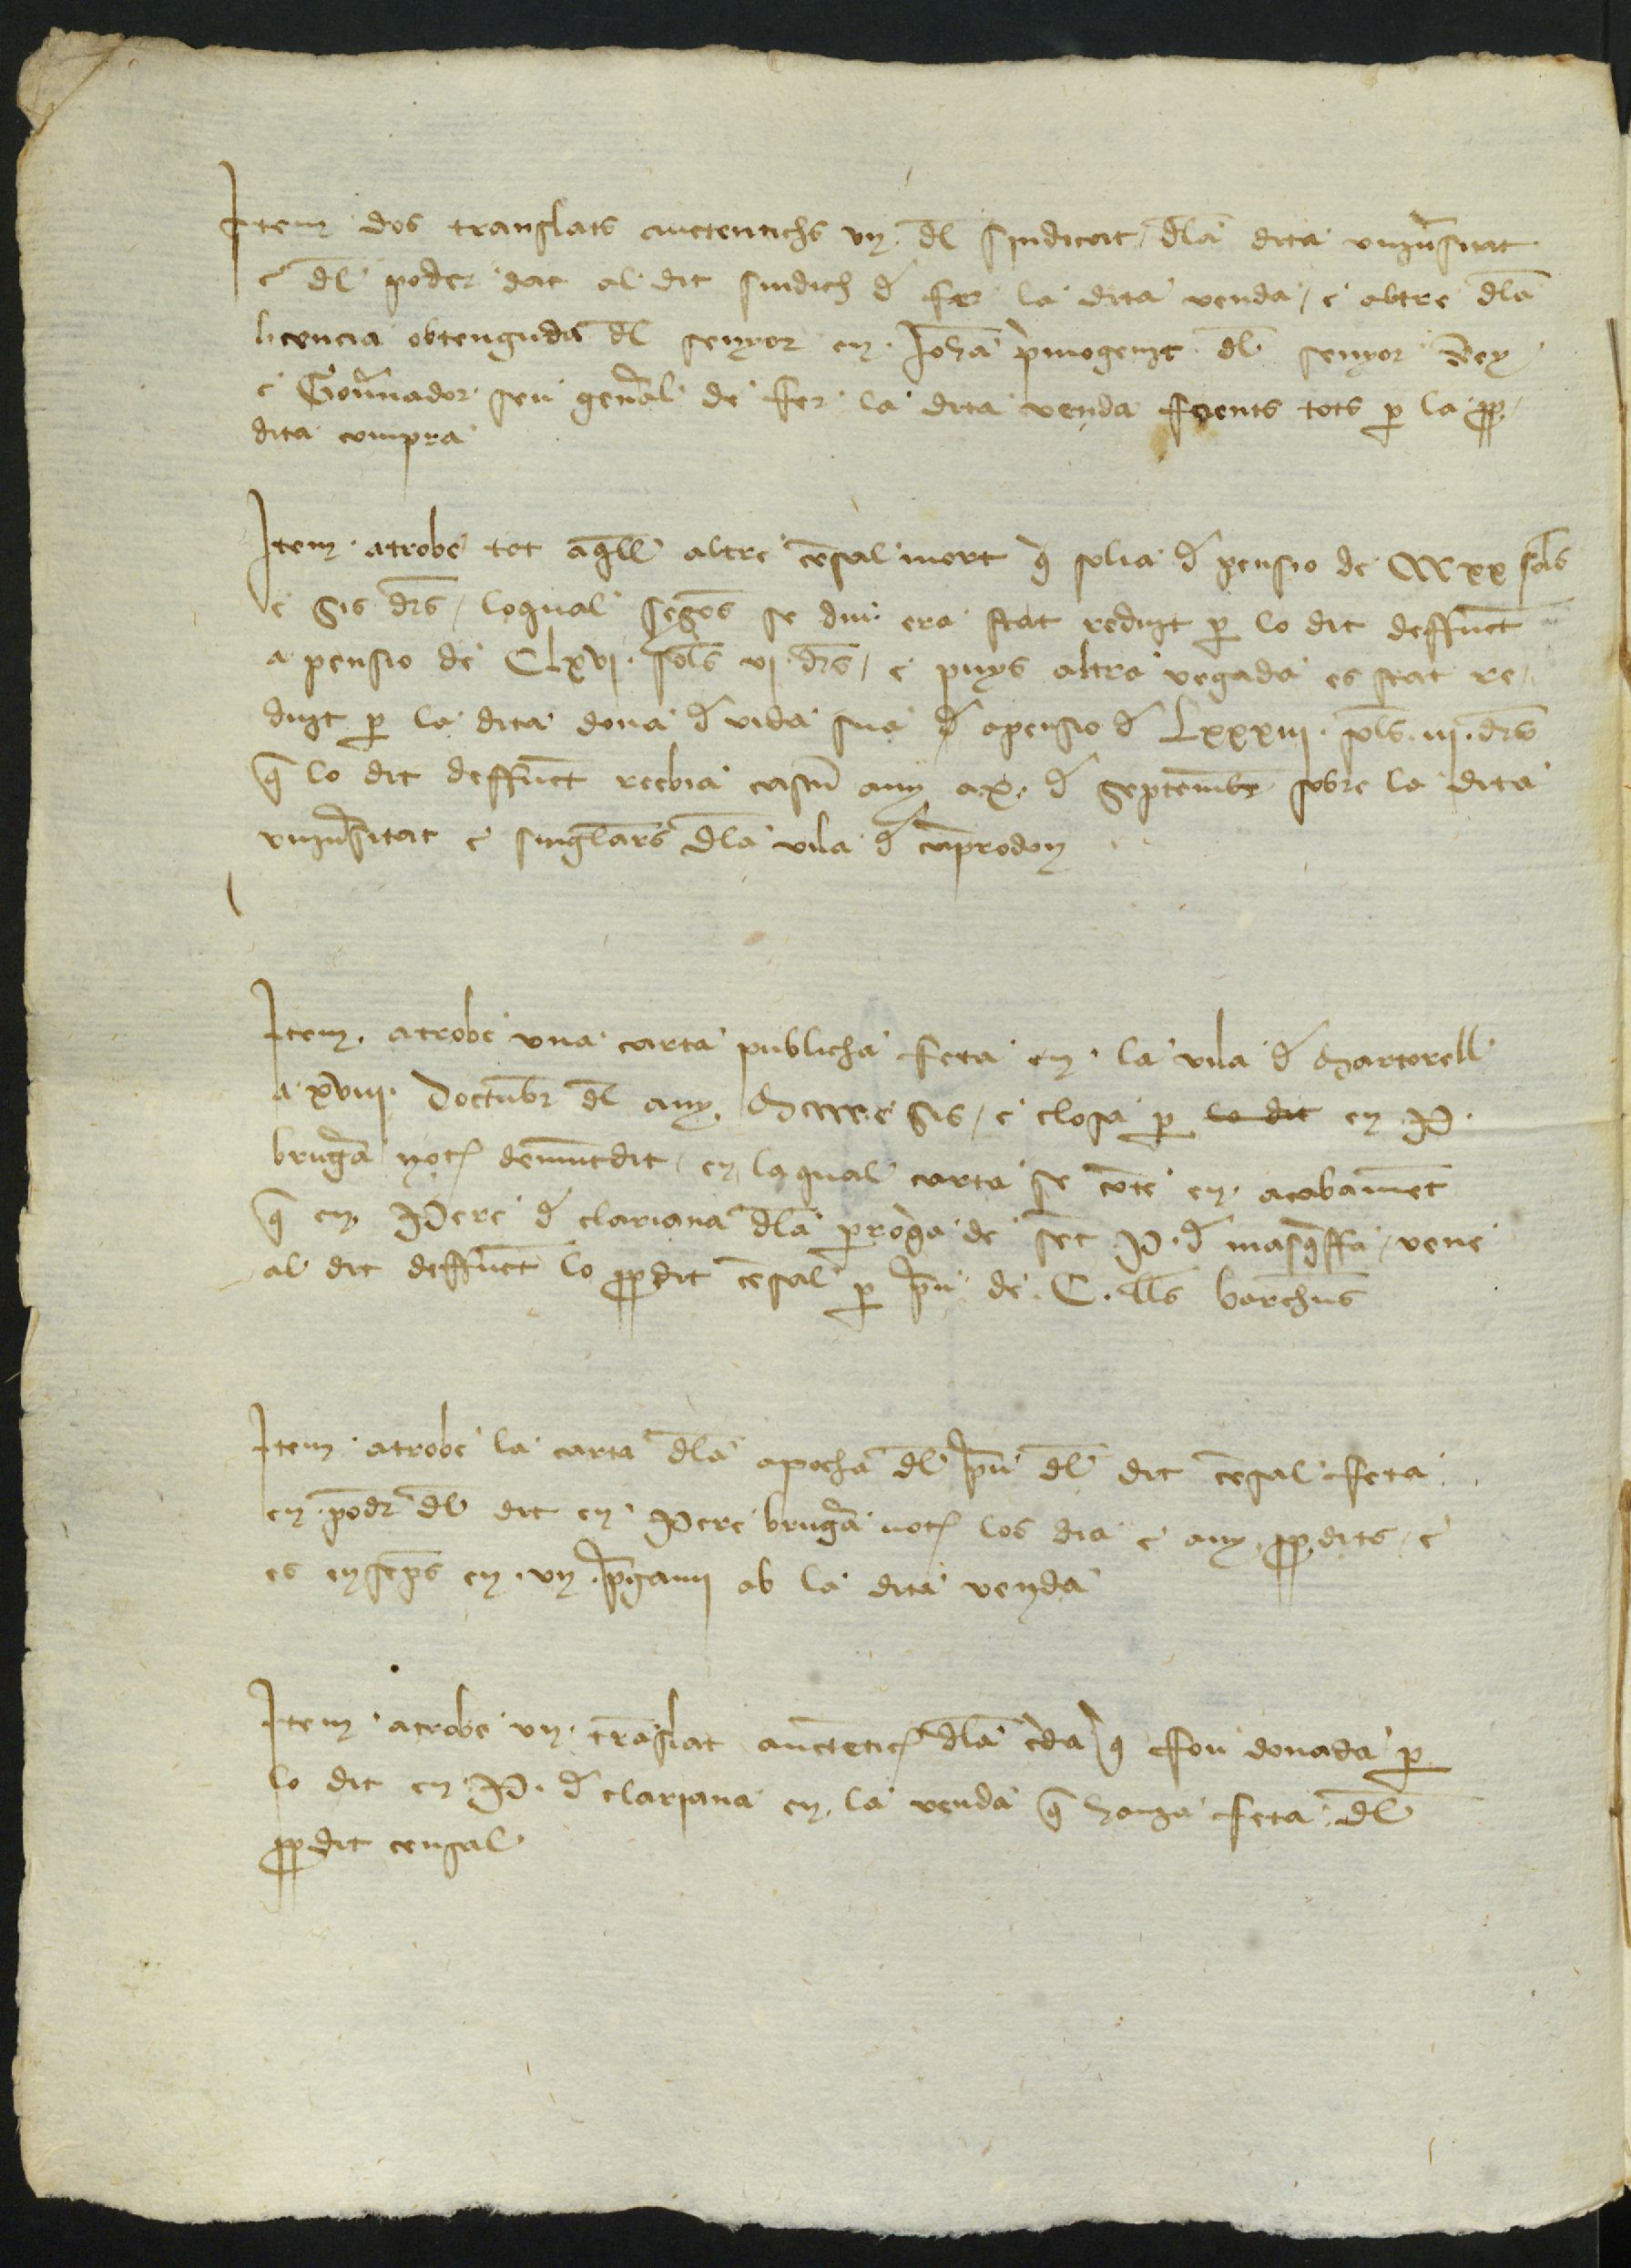 Item dos translats auctentichs vn dl̄ sindicat dl̄a dita vniu̾sitat
e dl̄ poder dat al dit sindich d̄ fer la dita venda / e altre dl̄a
licencia obtenguda dl̄ senyor en Joh̄a p̾mogenit dl̄ senyor Rey
e Gou̾nador seu gen̾al de fer la dita venda feents tots ꝑ la ꝓp
dita compra
Item atrobe tot aq̄ll altre c̄esal mort q̄ solia d̄ pensio de CCxxx sol̄s
e sis drs̄ / loqual segōs se diu era stat reduit ꝑ lo dit deffūct
a pensio de CLxvi. sol̄s vi. drs̄ / e puys altra vegada es stat re
duit ꝑ la dita dona d̄ vida sua d̄ apensio d̄ Lxxxiii. sol̄s. iii. drs̄
q̄ lo dit deffūct rebia cascū any a x. d̄ Septembr̄ sobre la dita
vniu̾sitat e singl̄ars dl̄a vila d̄ cāprodon
Item. atrobe vna carta publicha feta en la vila d̄ Martorell
a xviii. Doctūbr̄ dl̄ any. Mcccc e sis / e closa ꝑ lo dit en .P.
brug̾a not̄ demūtdit / en laqual carta se cōte en acabamēt
q̄ en Pere d̄ clariana dl̄a ꝑroq̾a de sēt .P. d̄ masq̄ffa / vene
al dit deffūct lo ꝓpdit c̄esal ꝑ p̄u de .C. ll̄s barchn̄s
Item atrobe la carta dl̄a apocha dl̄ p̄u dl̄ dit c̄esal feta
en pod̄r dl̄ dit en Pere brug̾a not̄ los dia e any ꝓpdits / e
es ensēps en vn p̾gami ab la dita venda
Item atrobe vn trāslat auctētich dl̄a c̾da q̄ fou donada ꝑ
lo dit en .P. d̄ clariana en la venda q̄ hauia feta dl̄
ꝓpdit censal